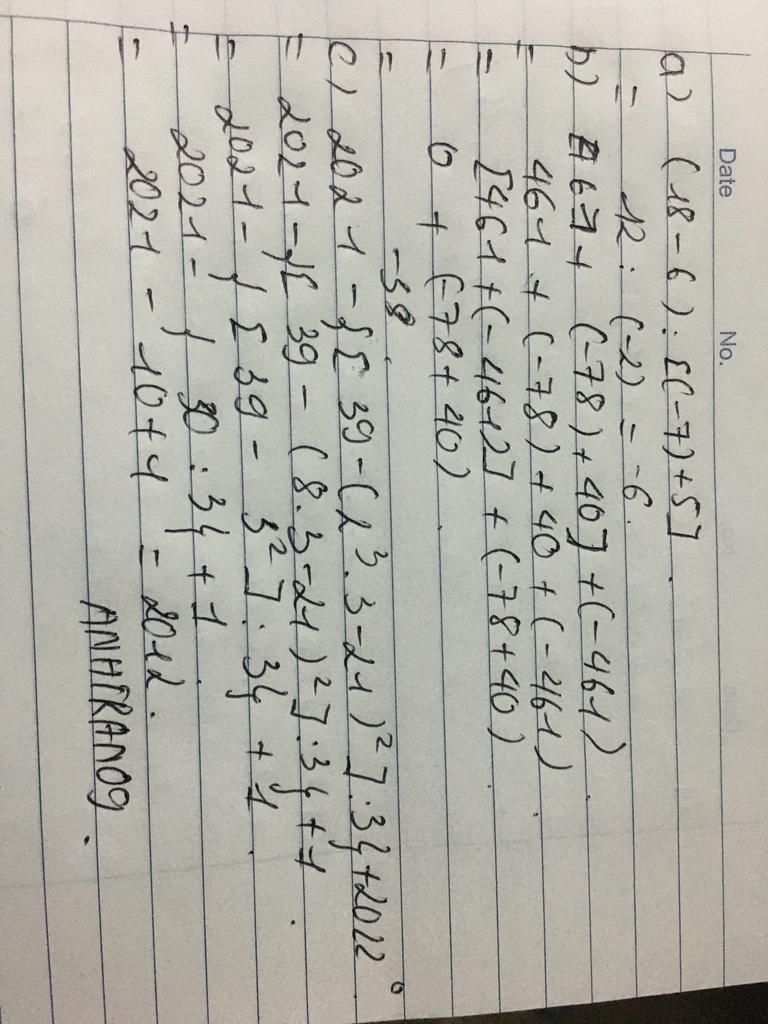 Date No.
a) (18 - 6) : [(-7) + 5]
= 12 : (-2) = -6.
b) [461 + (-78) + 40] + (-461)
= 461 + (-78) + 40 + (-461)
= [461 + (-461)] + (-78 + 40)
= 0 + (-78 + 40)
= -38.
c) 2021 - {[39 - (2³.3 - 21)²] : 3} + 2022⁰
= 2021 - {[39 - (8.3 - 21)²] : 3} + 1
= 2021 - {[39 - 3²] : 3} + 1
= 2021 - {30 : 3} + 1
= 2021 - 10 + 1 = 2012.
ANHTRAN09.